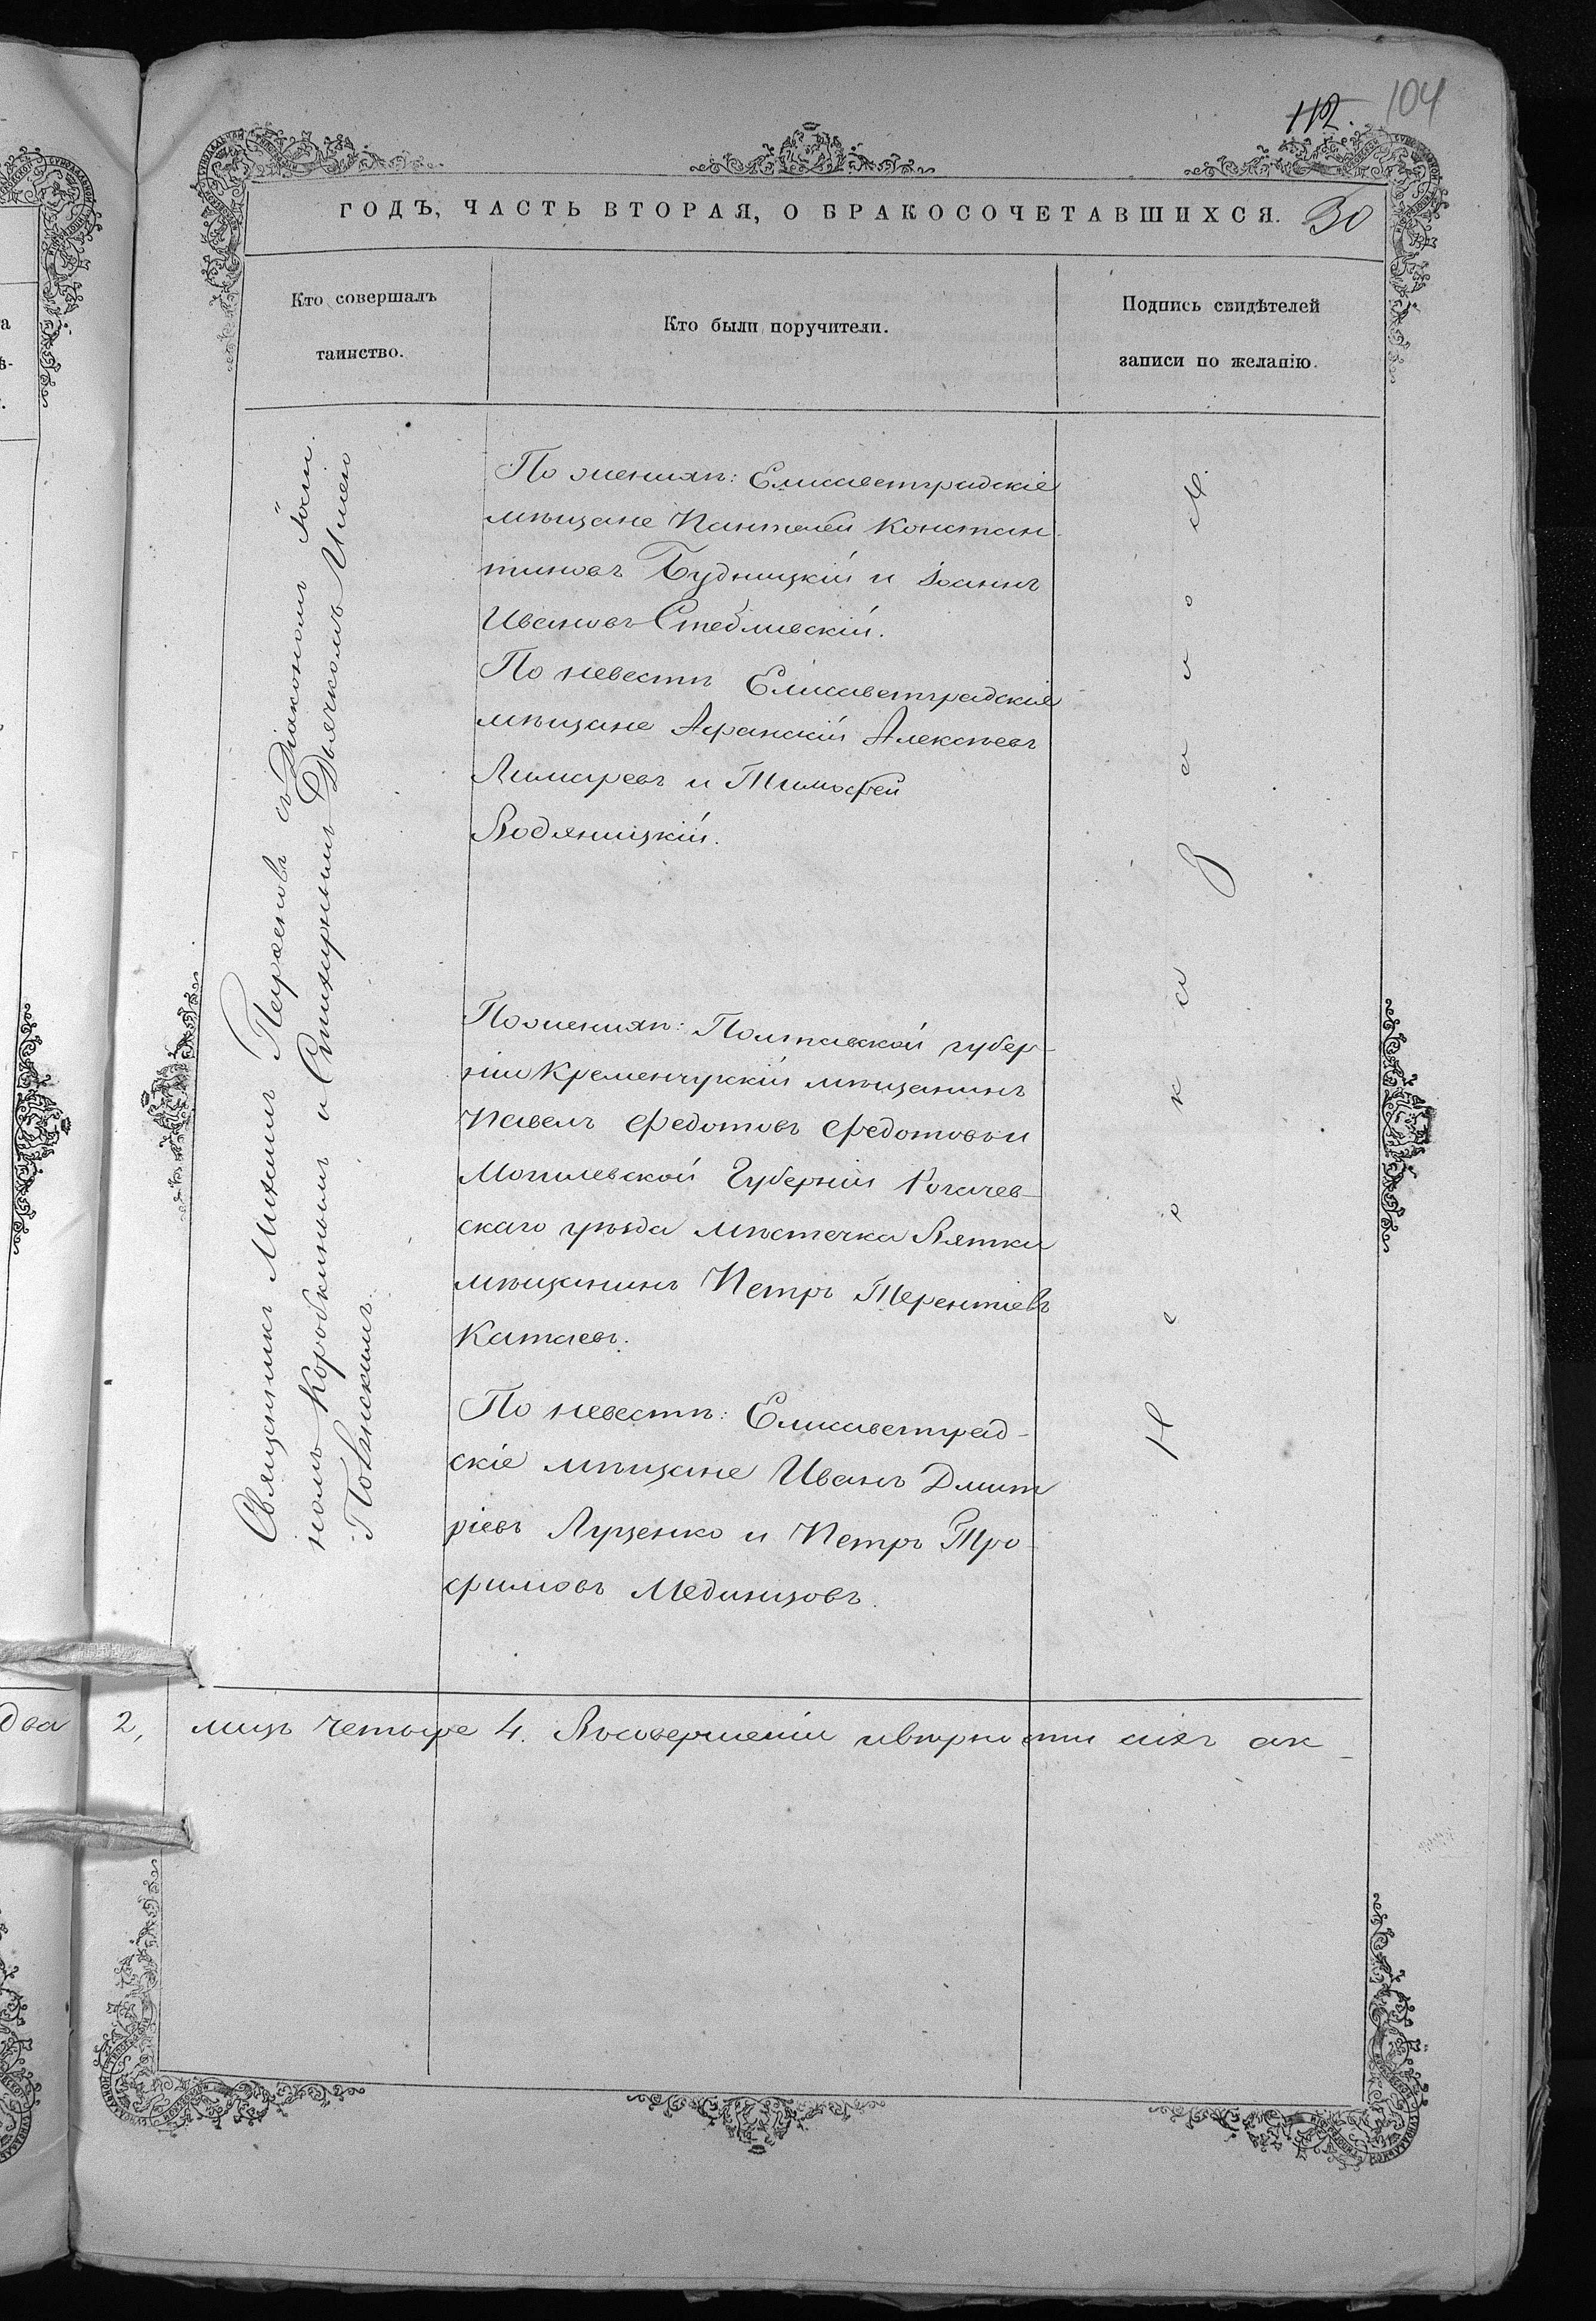 112.
104
ГОДЪ, ЧАСТЬ ВТОРАЯ, О БРАКОСОЧЕТАВШИХСЯ.
30
Кто совершалъ
таинство.
Кто были поручители.
Подпись свидѣтелей
записи по желанію.
Священникъ Михаилъ съ Діакономъ Іоан
номъ Коробкинымъ и Стихарнымъ Дьячкомъ
По женихѣ: Елисаветградскіе
мѣщане Пантелей Констан
тиновъ Будницкій и Іоаннъ
Ивановъ Стебливскій.
По невестѣ Елисаветградскіе
мѣщане Афанасій Алексѣевъ
Лимаревъ и Тимофей
Водяницкій.
По женихѣ: Полтавской губер-
ніи Кременчугскій мѣщанинъ
Павелъ Федотовъ Федотовъ и
Могилевской Губерніи Рогачев-
скаго уѣзда мѣстечка
мѣщанинъ Петръ Терентіевъ
Катаевъ.
По невестѣ: Елисаветград-
скіе мѣщане Иванъ Дмит
ріевъ Луценко и Петръ Тро
фимовъ Мединцовъ.
два 2, лицъ четыре 4. Въ совершеніи и вѣрности сихъ ак-